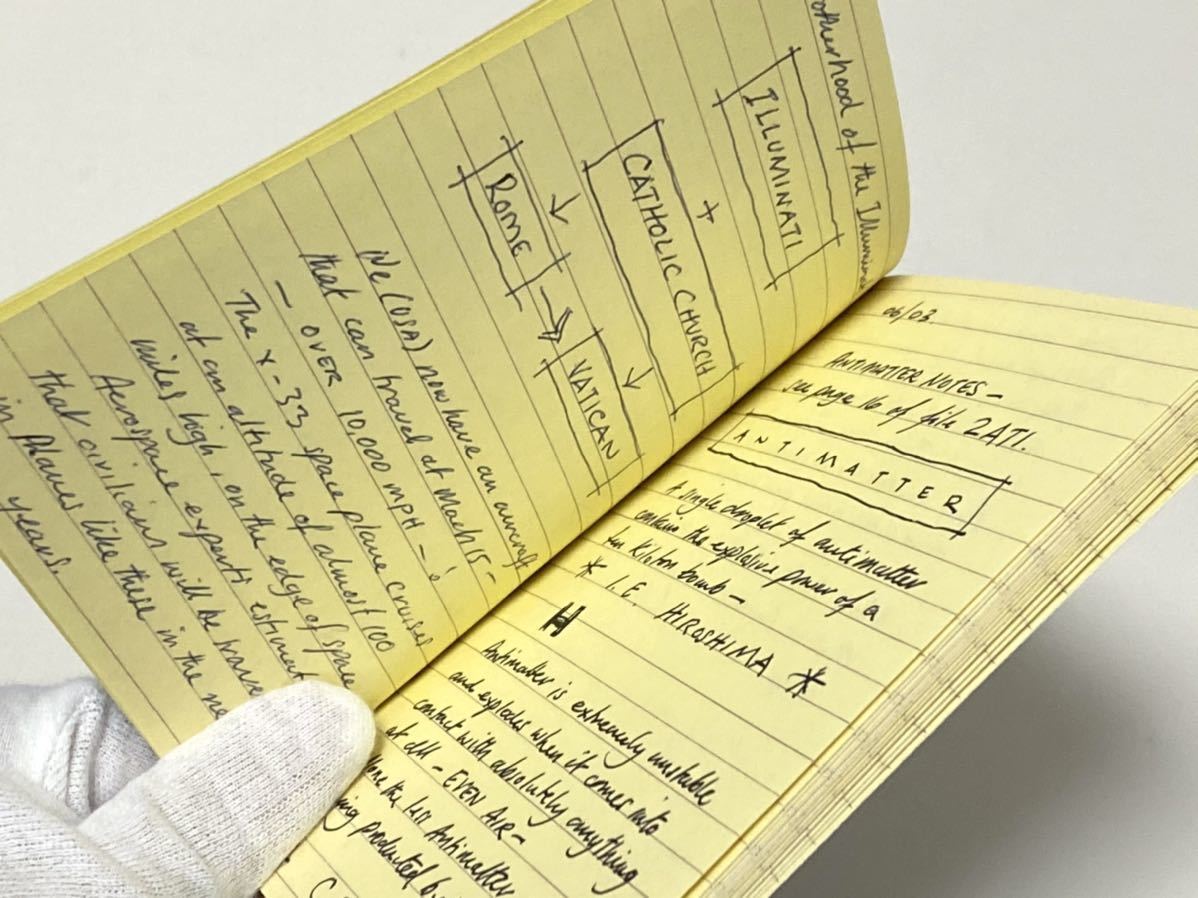 otherhood of the Illumina
ILLUMINATI
+
CATHOLIC CHURCH
↓ ↓
ROME → VATICAN
We (USA) now have an aircraft
that can travel at Mach 15 –
– OVER 10,000 MPH – !
The X-33 space plane cruises
at an altitude of almost 100
miles high, on the edge of space
Aerospace experts estimat
that civilians will be trave
in planes like these in the ne
years.
06/03.
ANTIMATTER NOTES –
see page 16 of file 2ATI.
ANTIMATTER
A single droplet of antimatter
contain the explosive power of a
ten Kiloton bomb –
* I.E. HIROSHIMA *
H
Antimatter is extremely unstable
and explodes when it comes into
contact with absolutely anything
at all – EVEN AIR –
the Antimatter
ing produced
C